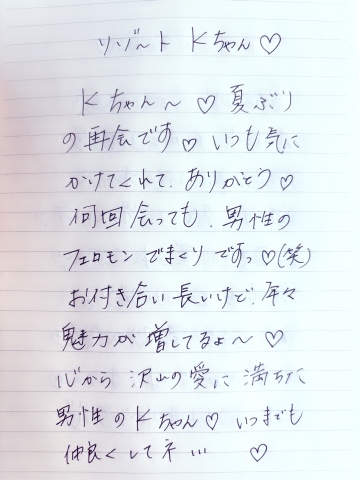 リゾート Kちゃん♡
Kちゃん〜♡ 夏ぶり
の再会です♡ いつも気に
かけてくれて、ありがとう♡
何回会っても、男性の
フェロモンでまくりですっ♡(笑)
お付き合い長いけど、年々
魅力が増してるよ〜♡
心から沢山の愛に満ちた
男性のKちゃん♡ いつまでも
仲良くしてネ…♡